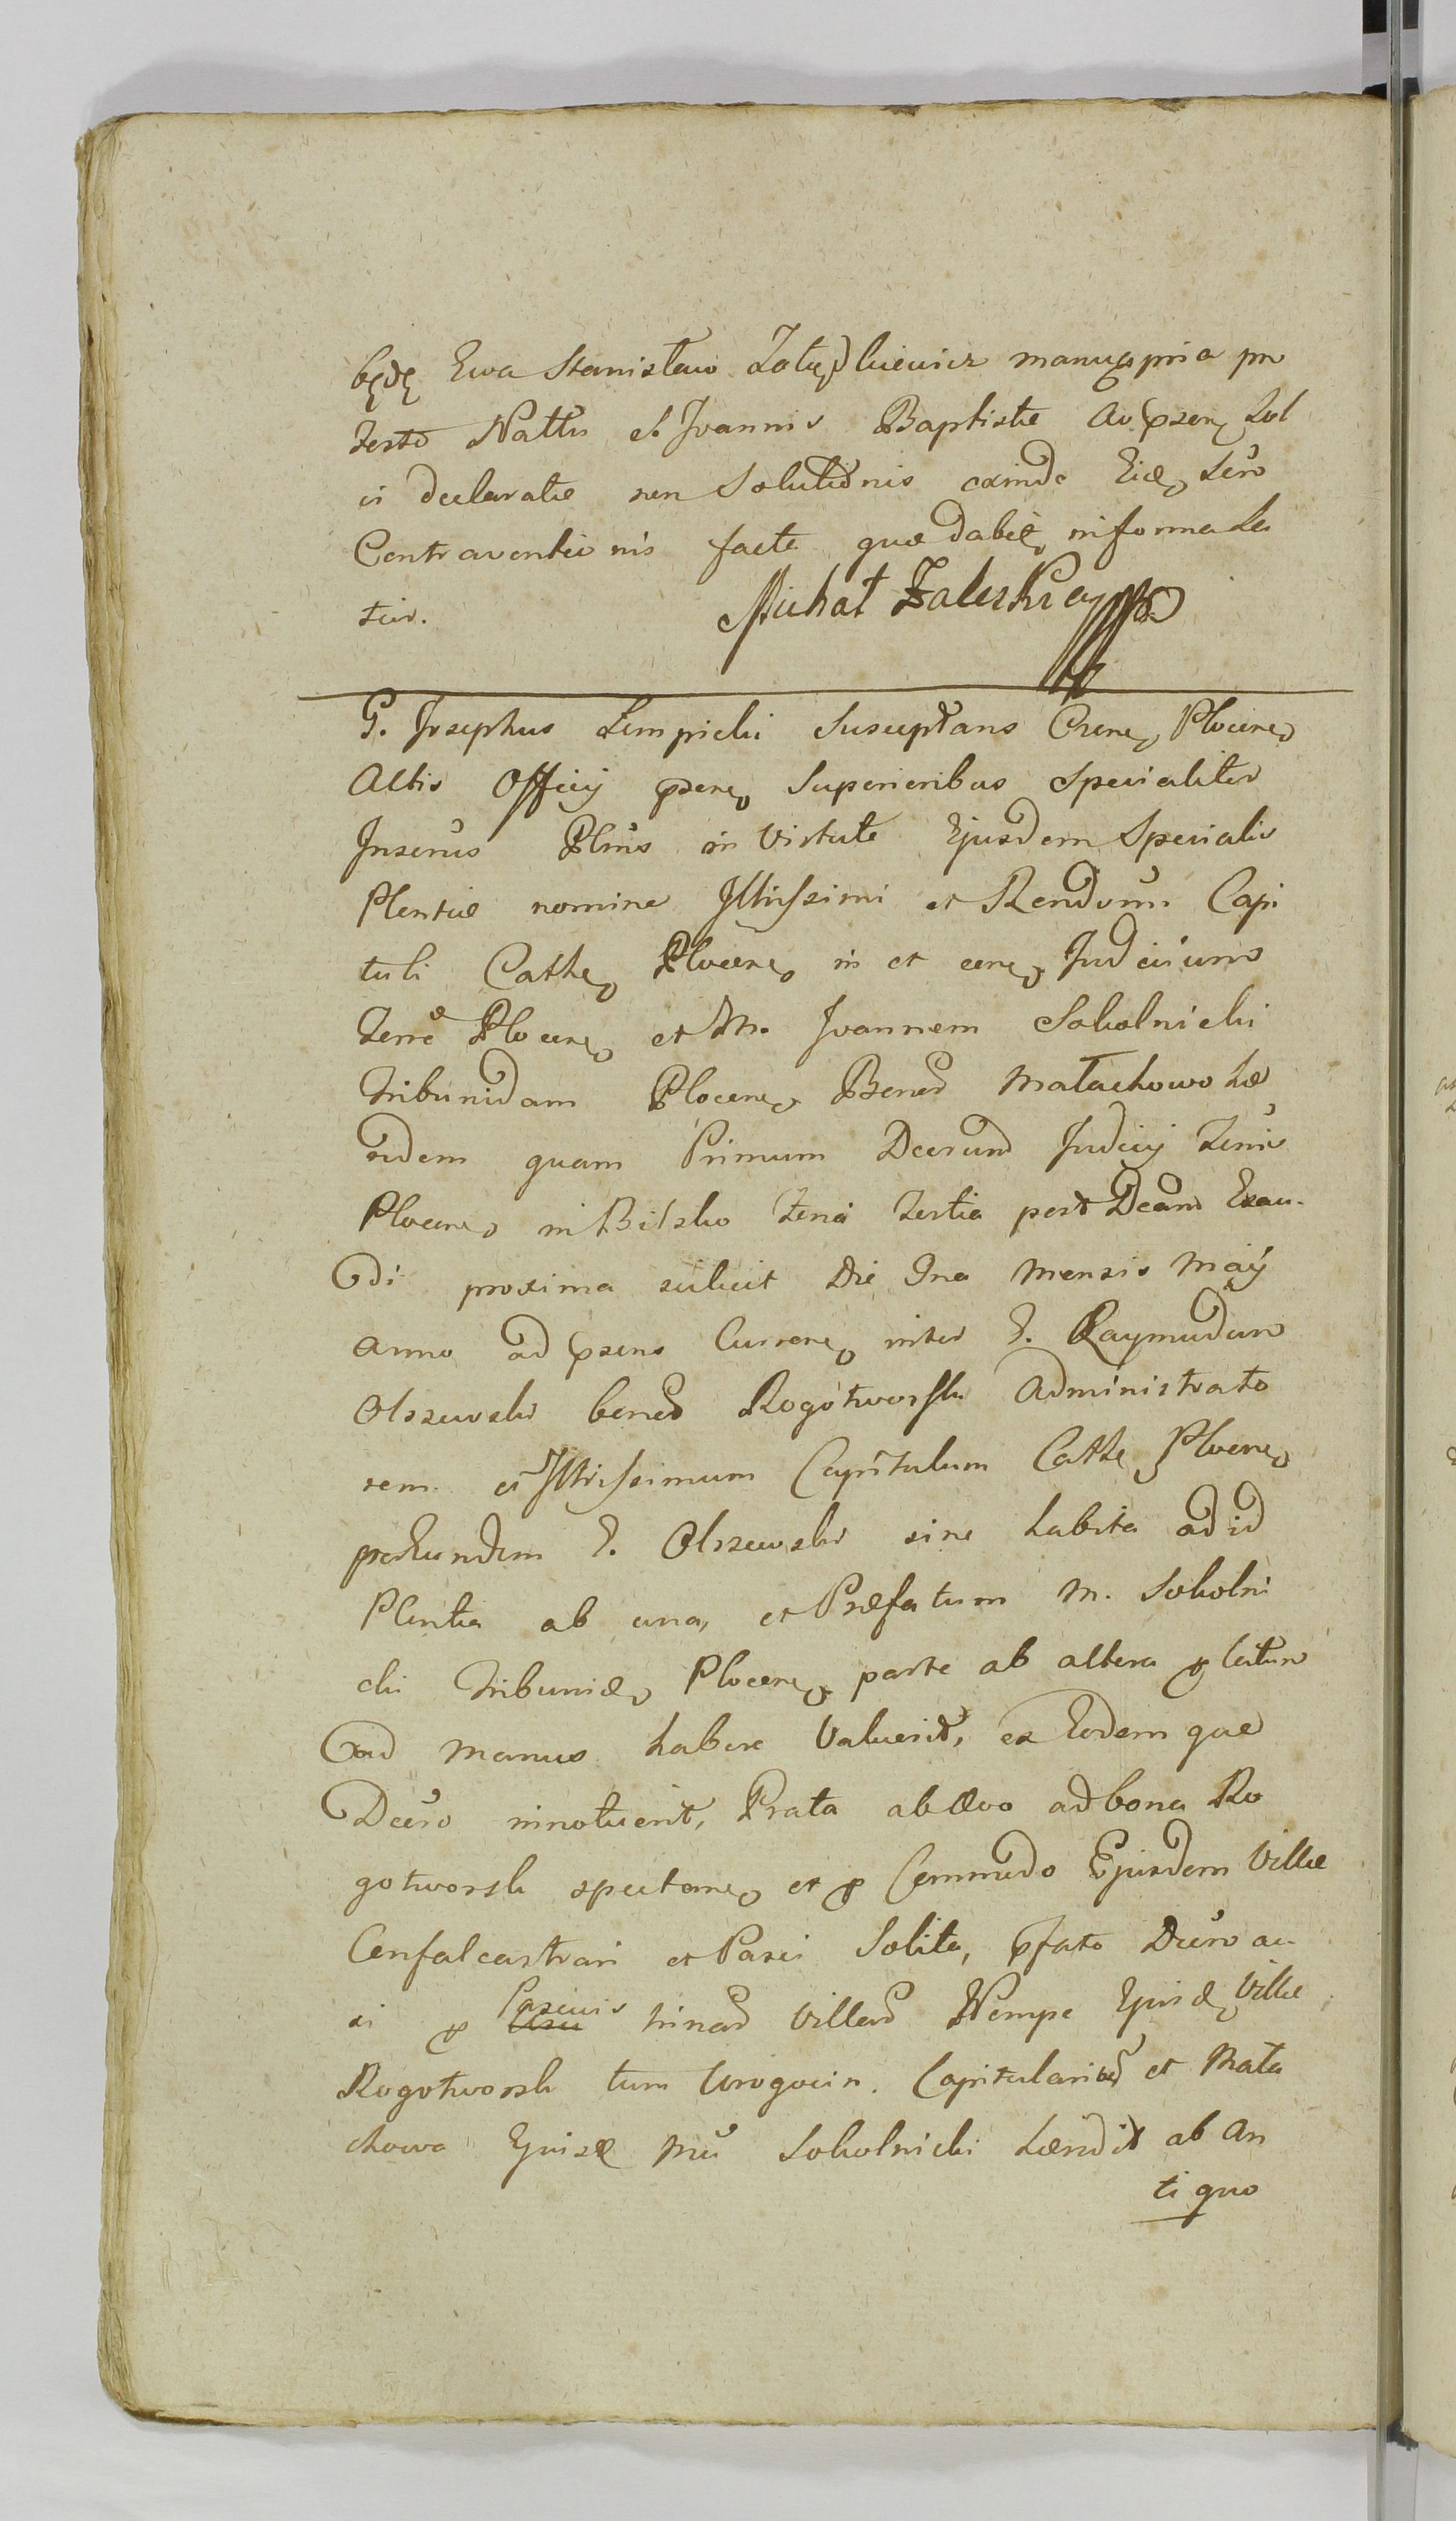 będę Ewa Stanisław manu propria pro
Festo Nattis S. Joannis Baptistæ
is declaratæ non Solutionis exinde Eidę
Contraventionis factæ quæ dabit, in forma La
tius.
Michał Zaleski
G. Josephus Lempicki Susceptans Plocene
Actis Officij psene Superioribus Specialiter
Insertus Plnus in Virtute Ejusdem Specialis
Plentiæ nomine Illrissimi et Rendvmi Capi
tuli Cathe Plocene in et Judicium
Terre Plocene et M. Joannem Sokolnicki
Tribunidam Plocene Bonor Małachowo hæ
redem quam Primum Decretum Judicij Terris
Plocene in Bilsko feria tertia post Dcam Exau
di proxima scilicet Die 2na Mensis Maÿ
anno ad psens Currene inter G. Raymudum
Olszewski bonor Rogotworsk Administrato
rem et Illrissimum Capitulum Cathe Plocene
per Eundem G. Olszewski sine habita ad id
Plentia ab una, et Præfatum M. Sokolni
cki Tribunid Plocene parte ab altera latum
ad manus habere Valuerit, ex Eodem que
Decro innotuerit, Prata ab ævo ad bona Ro
gotworsk spectane et p Commodo Ejusdem Villæ
Confalcastrari et Pasci Solita, pfato Decro ac
si p Pascuis trinar Villar Nempe Ejusd Villæ
Rogotworsk tum Worogocin. Capitularium et Mała
chowa Ejusd Mci Sokolnicki Hæredit ab An
tiquo